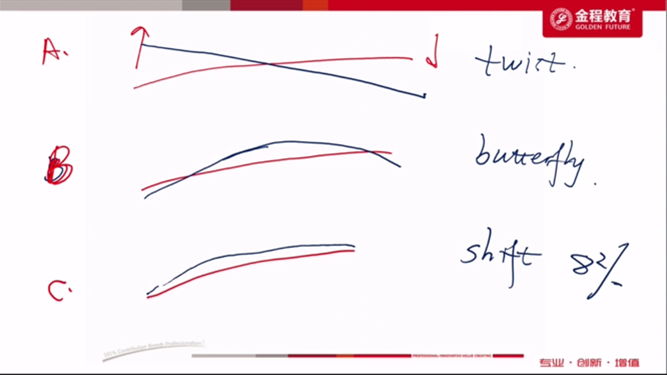 金程教育®
GOLDEN FUTURE
A. twist.
B butterfly.
C. shift 82%
专业·创新·增值